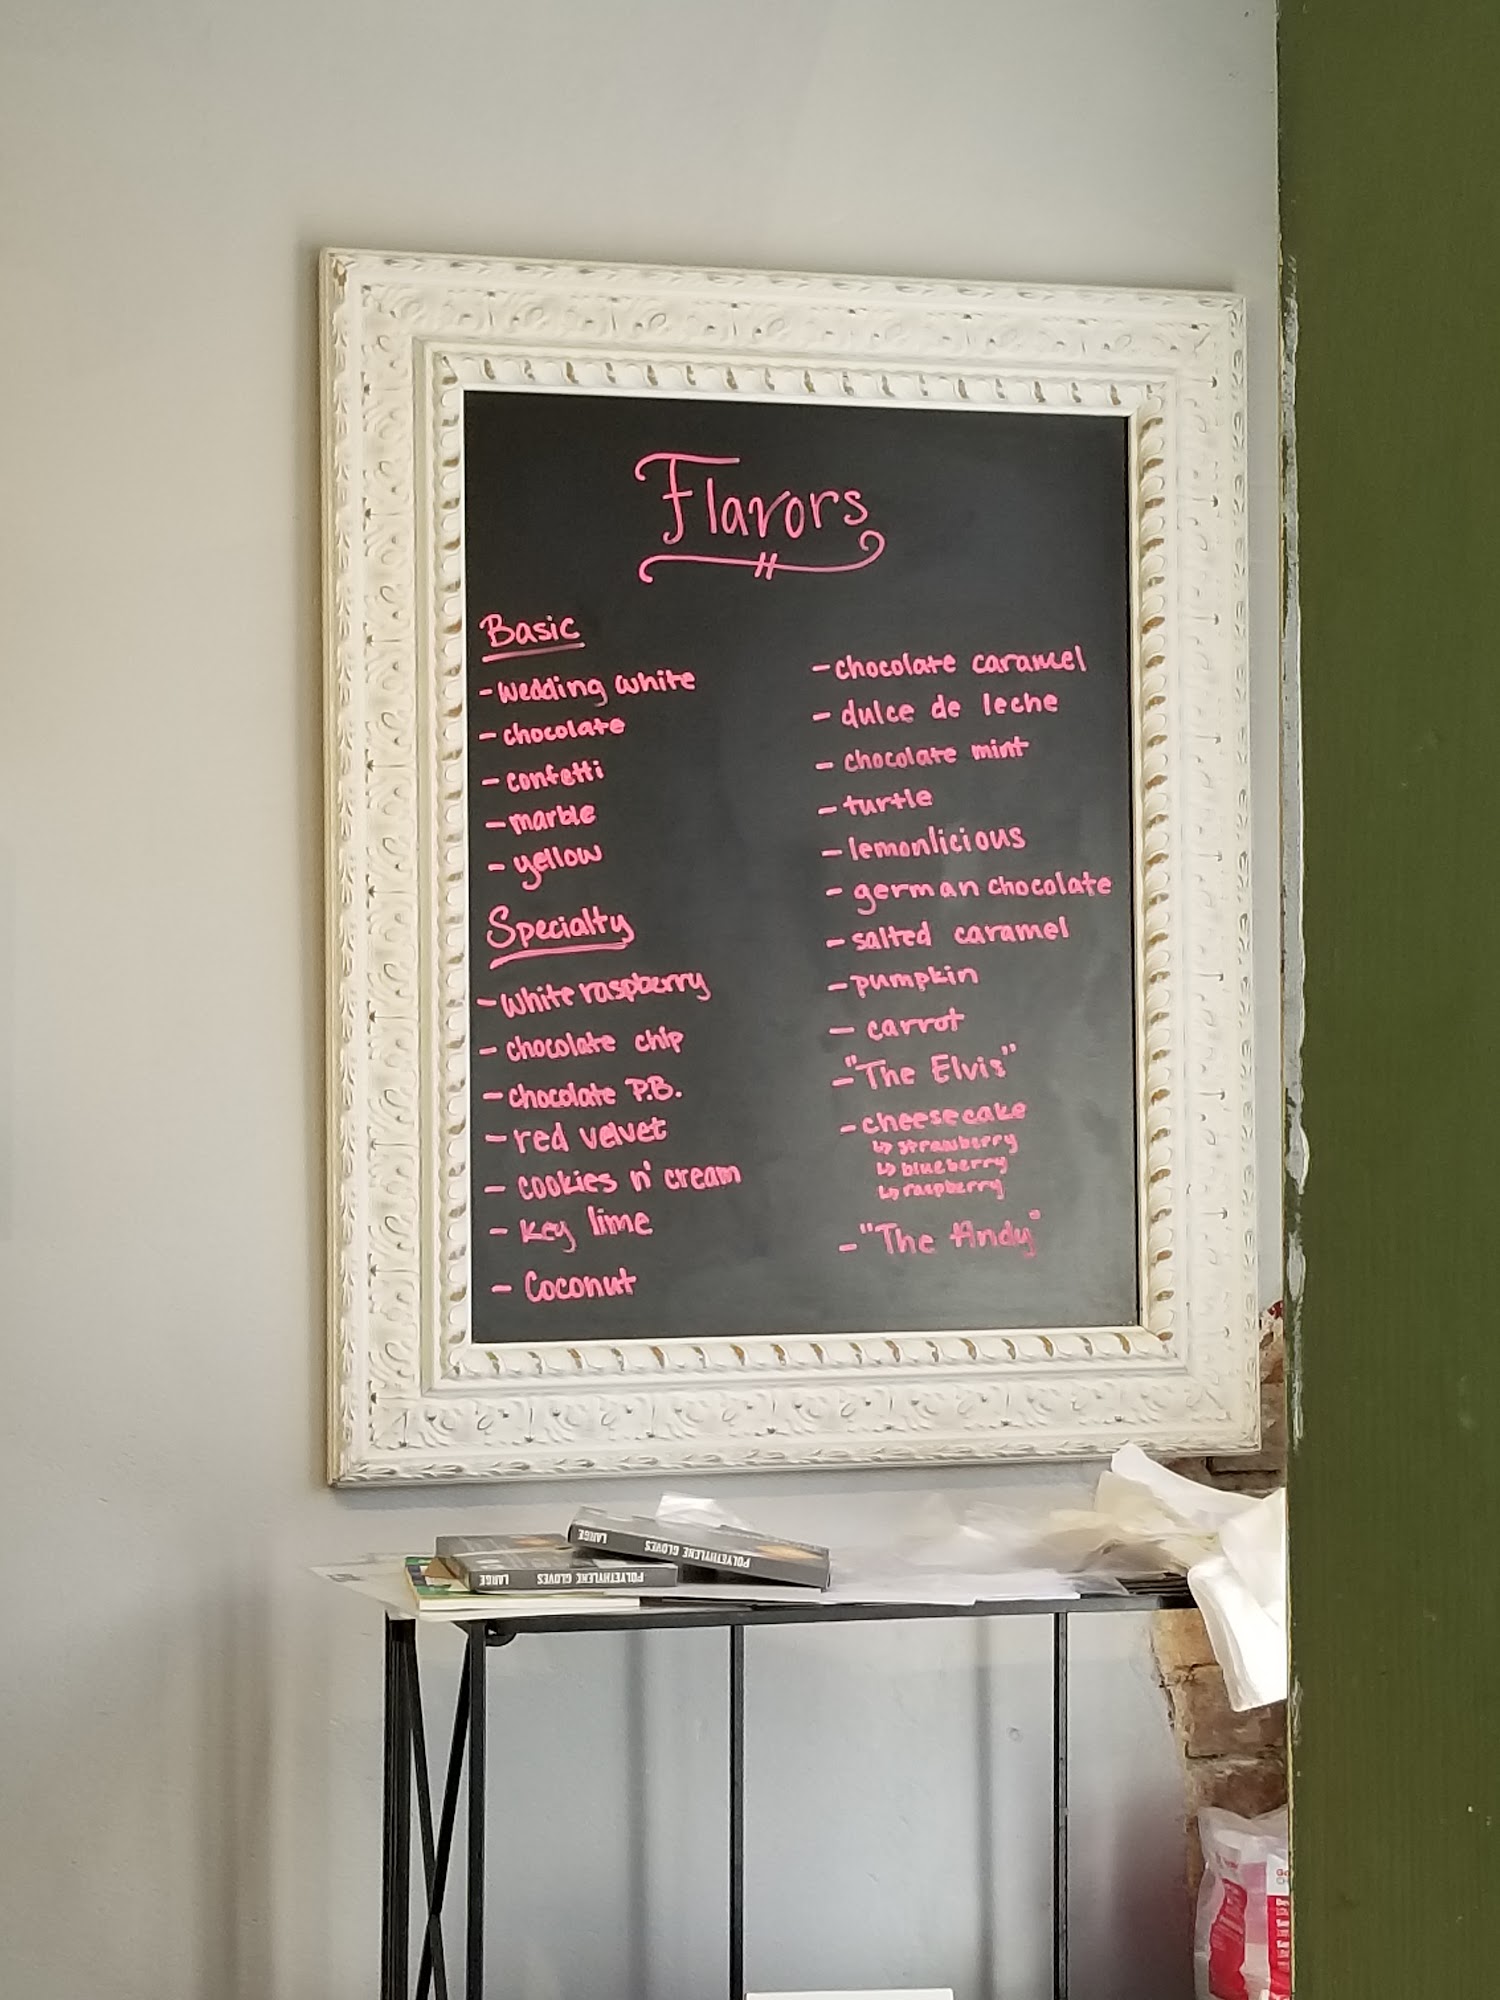 Flavors
Basic
- wedding white
- chocolate
- confetti
- marble
- yellow
Specialty
- white raspberry
- chocolate chip
- chocolate P.B.
- red velvet
- cookies n' cream
- key lime
- Coconut
- chocolate caramel
- dulce de leche
- chocolate mint
- turtle
- lemonlicious
- german chocolate
- salted caramel
- pumpkin
- carrot
- "The Elvis"
- cheesecake
↳ strawberry
↳ blueberry
↳ raspberry
- "The Andy"
POLYETHYLENE GLOVES LARGE
POLYETHYLENE GLOVES LARGE